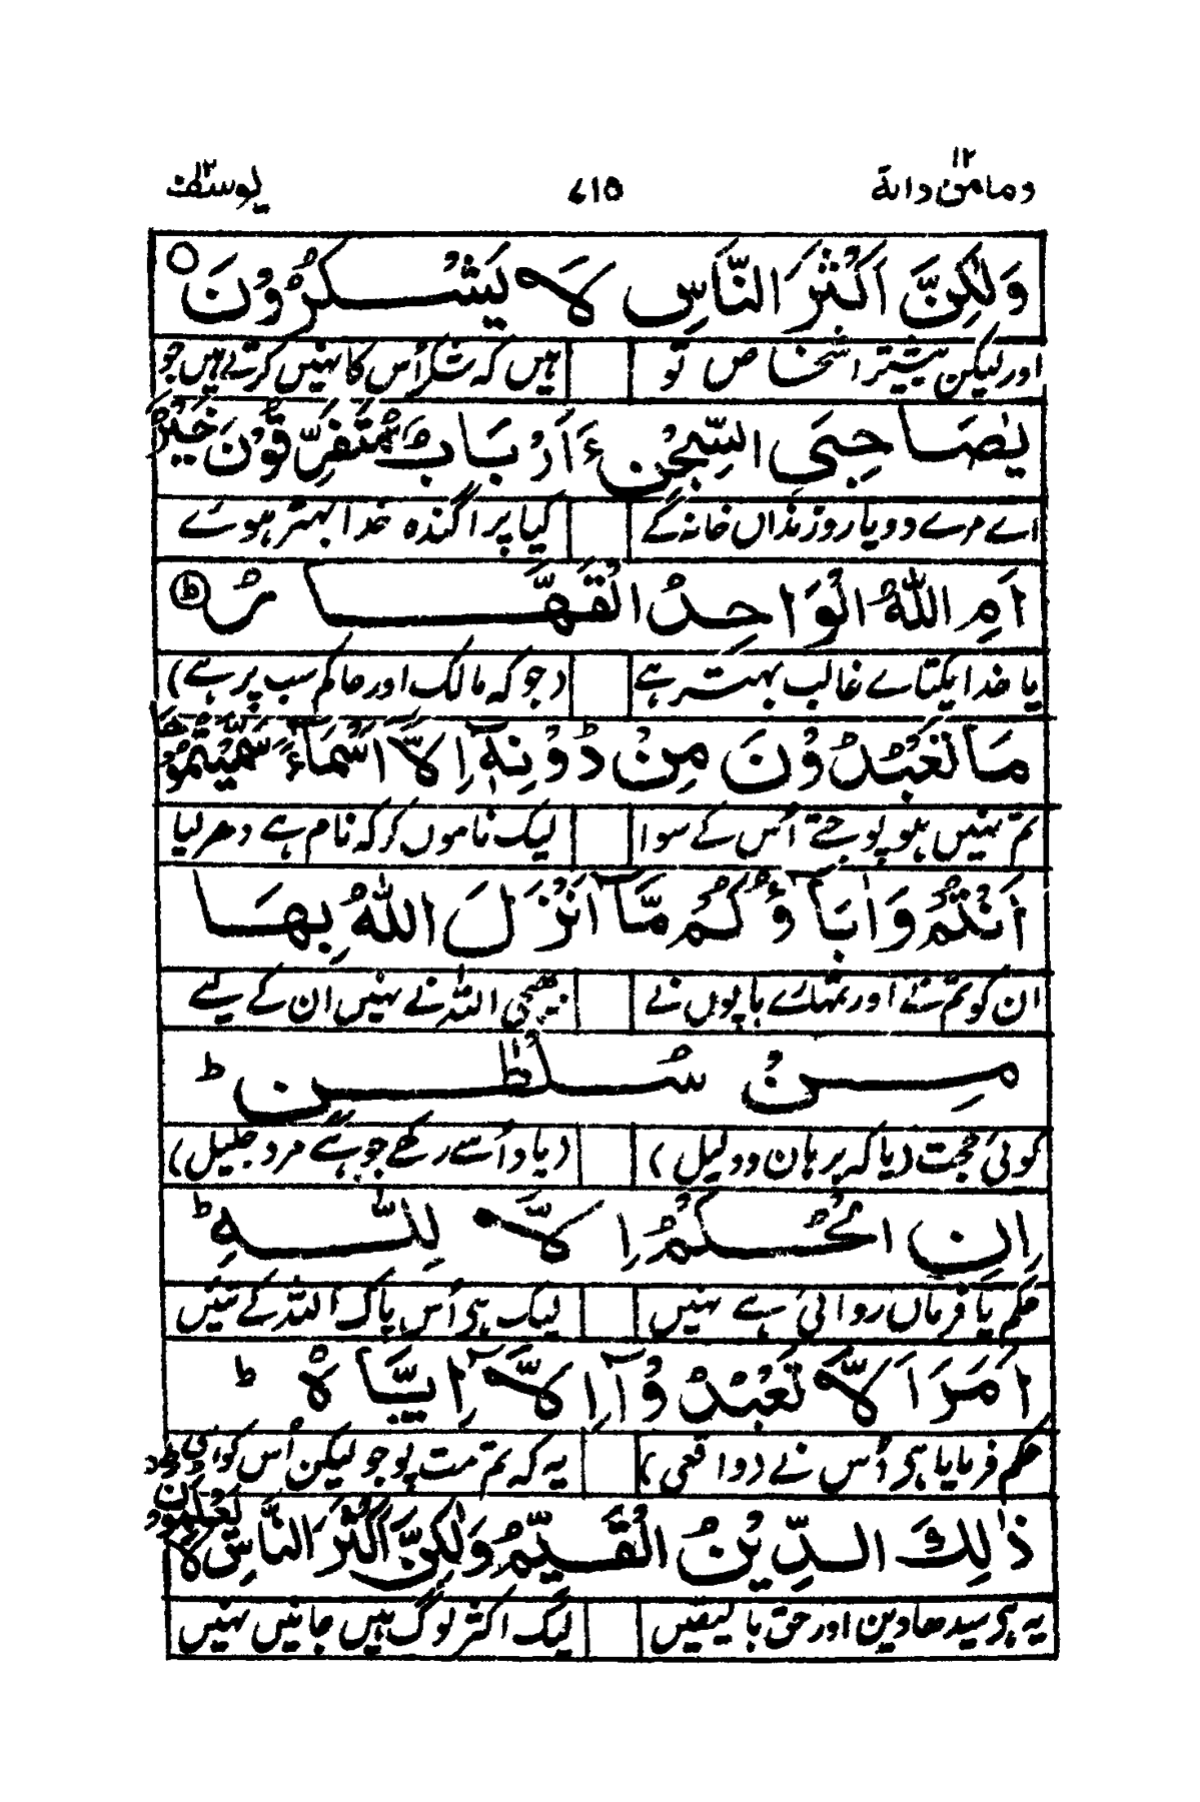 ومامن دابة ۱۲ ۶۱۵ یوسف ۱۲
وَلٰكِنَّ اَكْثَرَ النَّاسِ لَا يَشْكُرُوْنَ ○
اور لیکن بیشتر اشخاص تو ہیں کہ شکر اُس کا نہیں کرتے ہیں جو
يٰصَاحِبَيِ السِّجْنِ ءَاَرْبَابٌ مُّتَفَرِّقُوْنَ خَيْرٌ
اے مرے دو یارو زنداں خانہ کے کیا پراگندہ خدا بہتر ہوئے
اَمِ اللّٰهُ الْوَاحِدُ الْقَهَّارُ ط
یا خدا یکتا ہے غالب بہتر ہے (جو کہ مالک اور حاکم سب پر ہے)
مَا تَعْبُدُوْنَ مِنْ دُوْنِهٖٓ اِلَّآ اَسْمَآءً سَمَّيْتُمُوْهَآ
تم نہیں ہو پوجتے اُس کے سوا لیک ناموں کو کہ نام ہے دھر لیا
اَنْتُمْ وَاٰبَآؤُكُمْ مَّآ اَنْزَلَ اللّٰهُ بِهَا
ان کو تم نے اور تمہارے باپوں نے بھیجی اللہ نے نہیں ان کے لیے
مِنْ سُلْطٰنٍ ط
کوئی حجت (یا کہ برہان و دلیل) (یا و اُسے رکھے جو ہے مرد جلیل)
اِنِ الْحُكْمُ اِلَّا لِلّٰهِ ط
حکم یا فرماں روائی ہے نہیں لیک ہی اُس پاک اللہ کے تئیں
اَمَرَ اَلَّا تَعْبُدُوْٓا اِلَّآ اِيَّاهُ ط
حکم فرمایا ہی اُس نے (واقعی) یہ کہ تم مت پوجو لیکن اُس کو ای
ذٰلِكَ الدِّيْنُ الْقَيِّمُ وَلٰكِنَّ اَكْثَرَ النَّاسِ لَا يَعْلَمُوْنَ
یہ ہی سیدھا دین اور حق بالیقیں لیک اکثر لوگ ہیں جانیں نہیں